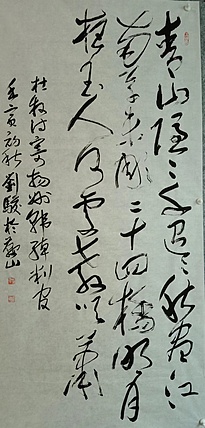 青山隐二水迢二秋尽江
南草未凋二十四桥明月
夜玉人何处教吹箫
杜牧诗寄扬州韩绰判官
刘骏於庐山